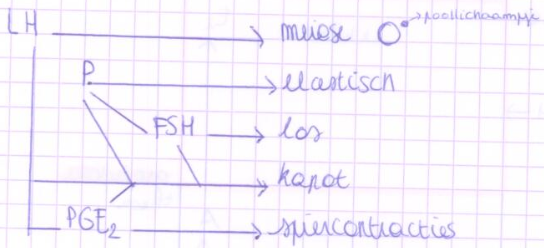 LH → meiose → poollichaampje
P → elastisch
FSH → los
→ kapot
PGE₂ → spiercontracties